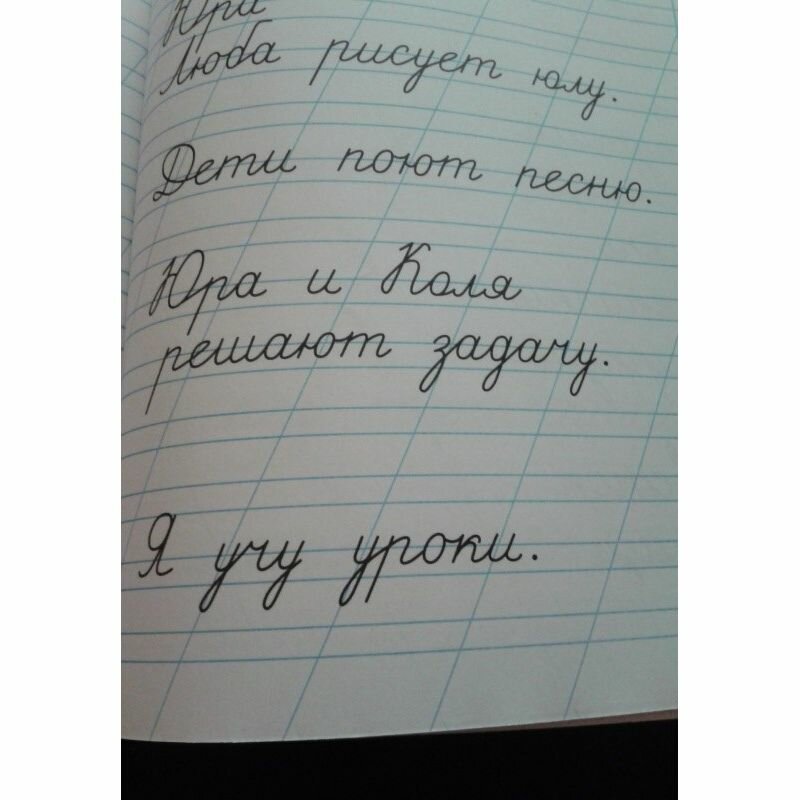 Юра
Люба рисует юлу.
Дети поют песню.
Юра и Коля
решают задачу.
Я учу уроки.